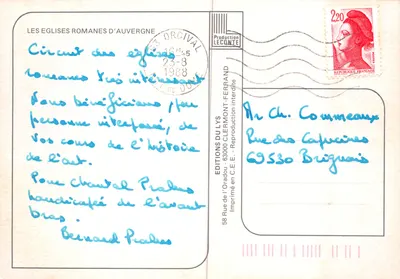 LES EGLISES ROMANES D'AUVERGNE
Circuit des eglises
romanes très intéressant
Nous bénéficions, par
personne interposée, de
vos cours de l'histoire
de l'art.
Pour Chantal Prahus
handicapée de l'avant
bras.
Bernard Prahus
Production
LECONTE
EDITIONS DU LYS
58 Rue de l'Oradou - 63000 CLERMONT-FERRAND
Imprimé en C.E.E. - Reproduction interdite
ORCIVAL
23-8
1988
2,20
REPUBLIQUE FRANCAISE
Mr Ch. Commeaux
Rue des Capucines
69530 Brignais